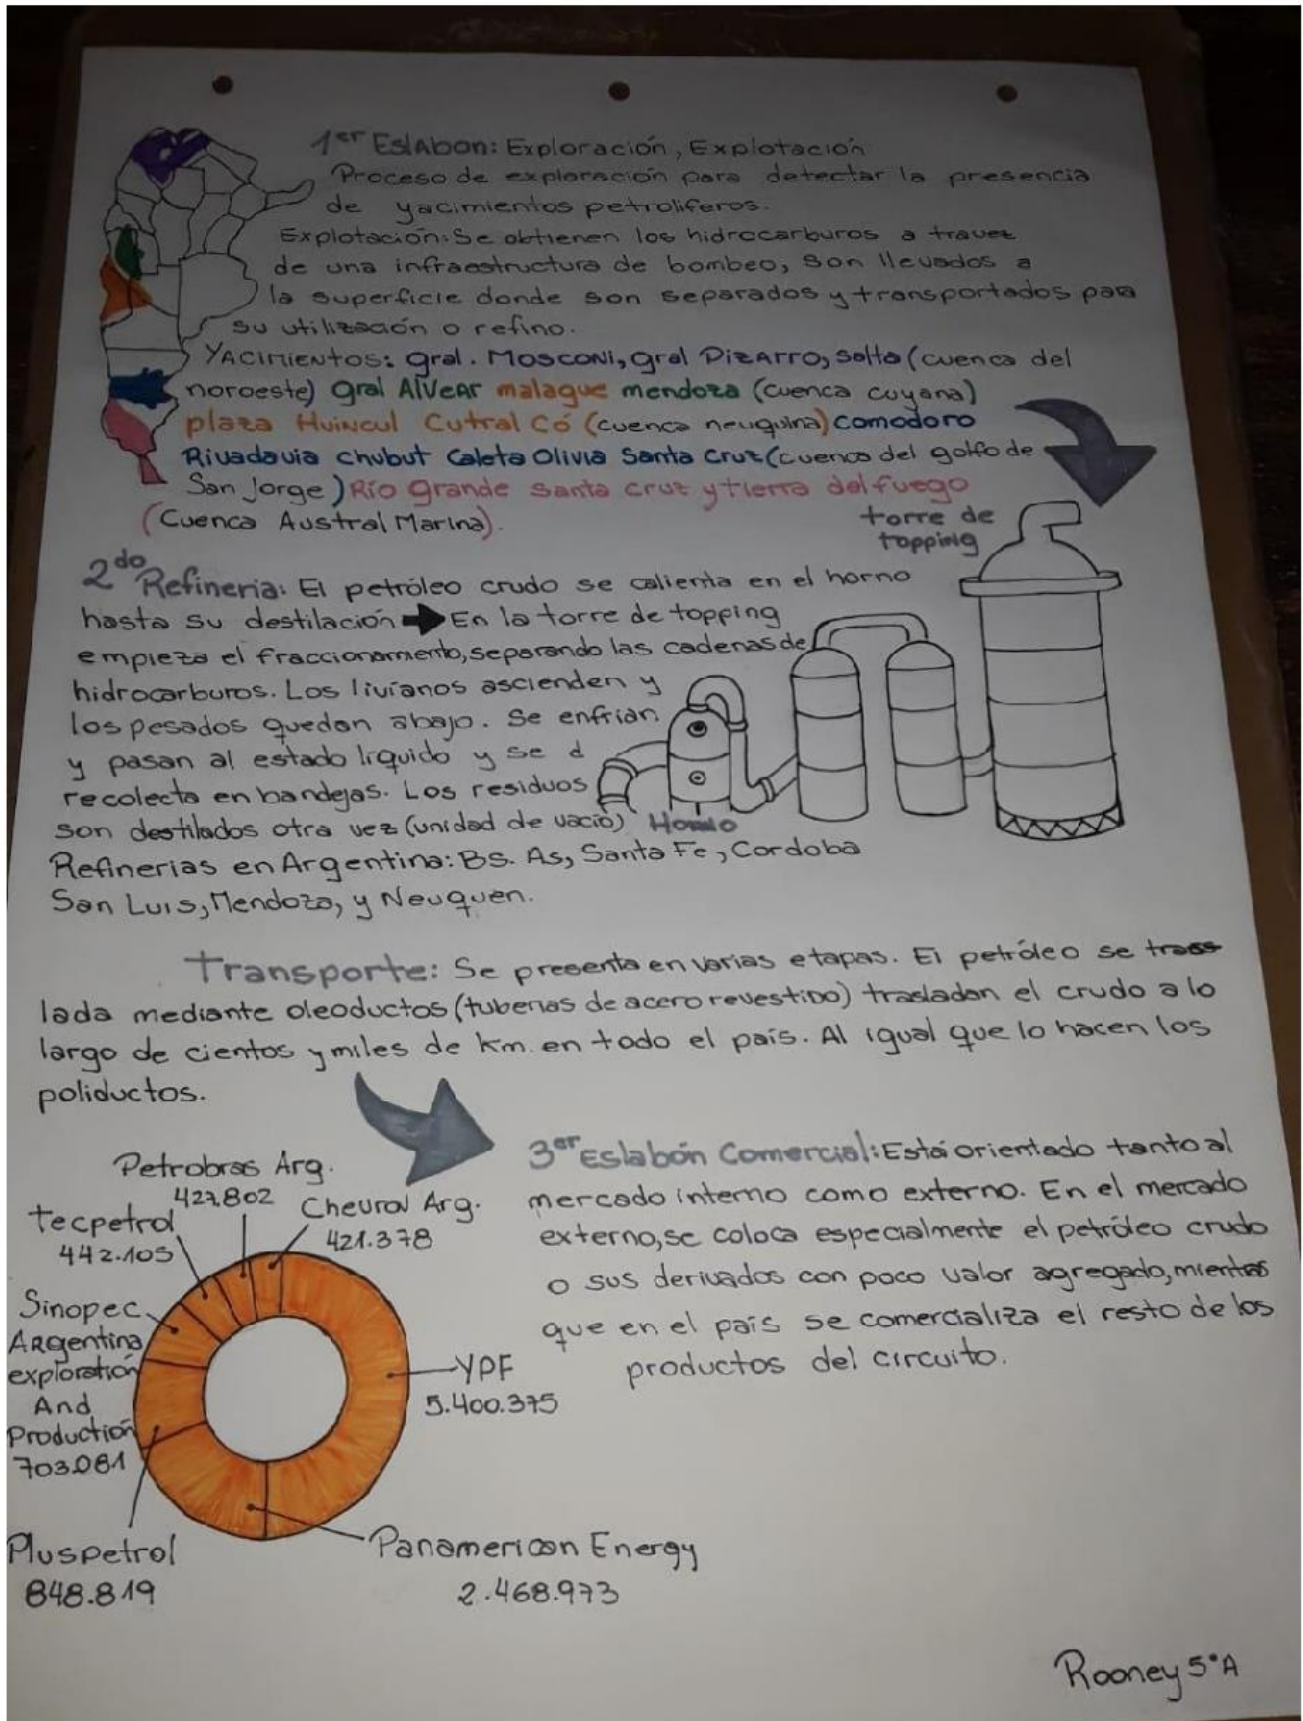 1er Eslabon: Exploración, Explotación
Proceso de exploración para detectar la presencia
de yacimientos petroliferos.
Explotación: Se obtienen los hidrocarburos a travez
de una infraestructura de bombeo, son llevados a
la superficie donde son separados y transportados para
su utilización o refino.
YACIMIENTOS: gral. MOSCONI, gral PIZARRO, salta (cuenca del
noroeste) gral AlVEAR malague mendoza (cuenca cuyana)
plaza Huincul Cutral Có (cuenca neuquina) comodoro
Rivadavia chubut Caleta Olivia Santa Cruz (cuenca del golfo de
San Jorge) Río grande santa cruz y tierra del fuego
(Cuenca Austral Marina).
torre de
topping
2do Refineria: El petróleo crudo se calienta en el horno
hasta su destilación En la torre de topping
empieza el fraccionamento, separando las cadenas de
hidrocarburos. Los livianos ascienden y
los pesados quedan abajo. Se enfrian
y pasan al estado líquido y se d
recolecta en bandejas. Los residuos
son destilados otra vez (unidad de vacío) Horno
Refinerias en Argentina: BS. As, Santa Fe, Cordoba
San Luis, Mendoza, y Neuquen.
Transporte: Se presenta en varias etapas. El petróleo se tras
lada mediante oleoductos (tuberias de acero revestido) trasladan el crudo a lo
largo de cientos y miles de Km. en todo el país. Al igual que lo hacen los
poliductos.
3er Eslabón Comercial: Está orientado tanto al
mercado interno como externo. En el mercado
externo, se coloca especialmente el petróleo crudo
o sus derivados con poco valor agregado, mientras
que en el país se comercializa el resto de los
productos del circuito.
Petrobras Arg.
427.802
Chevron Arg.
421.378
tecpetrol
442.105
Sinopec
Argentina
exploration
And
Production
703.081
YPF
5.400.375
Pluspetrol
848.819
Panamerican Energy
2.468.973
Rooney 5°A